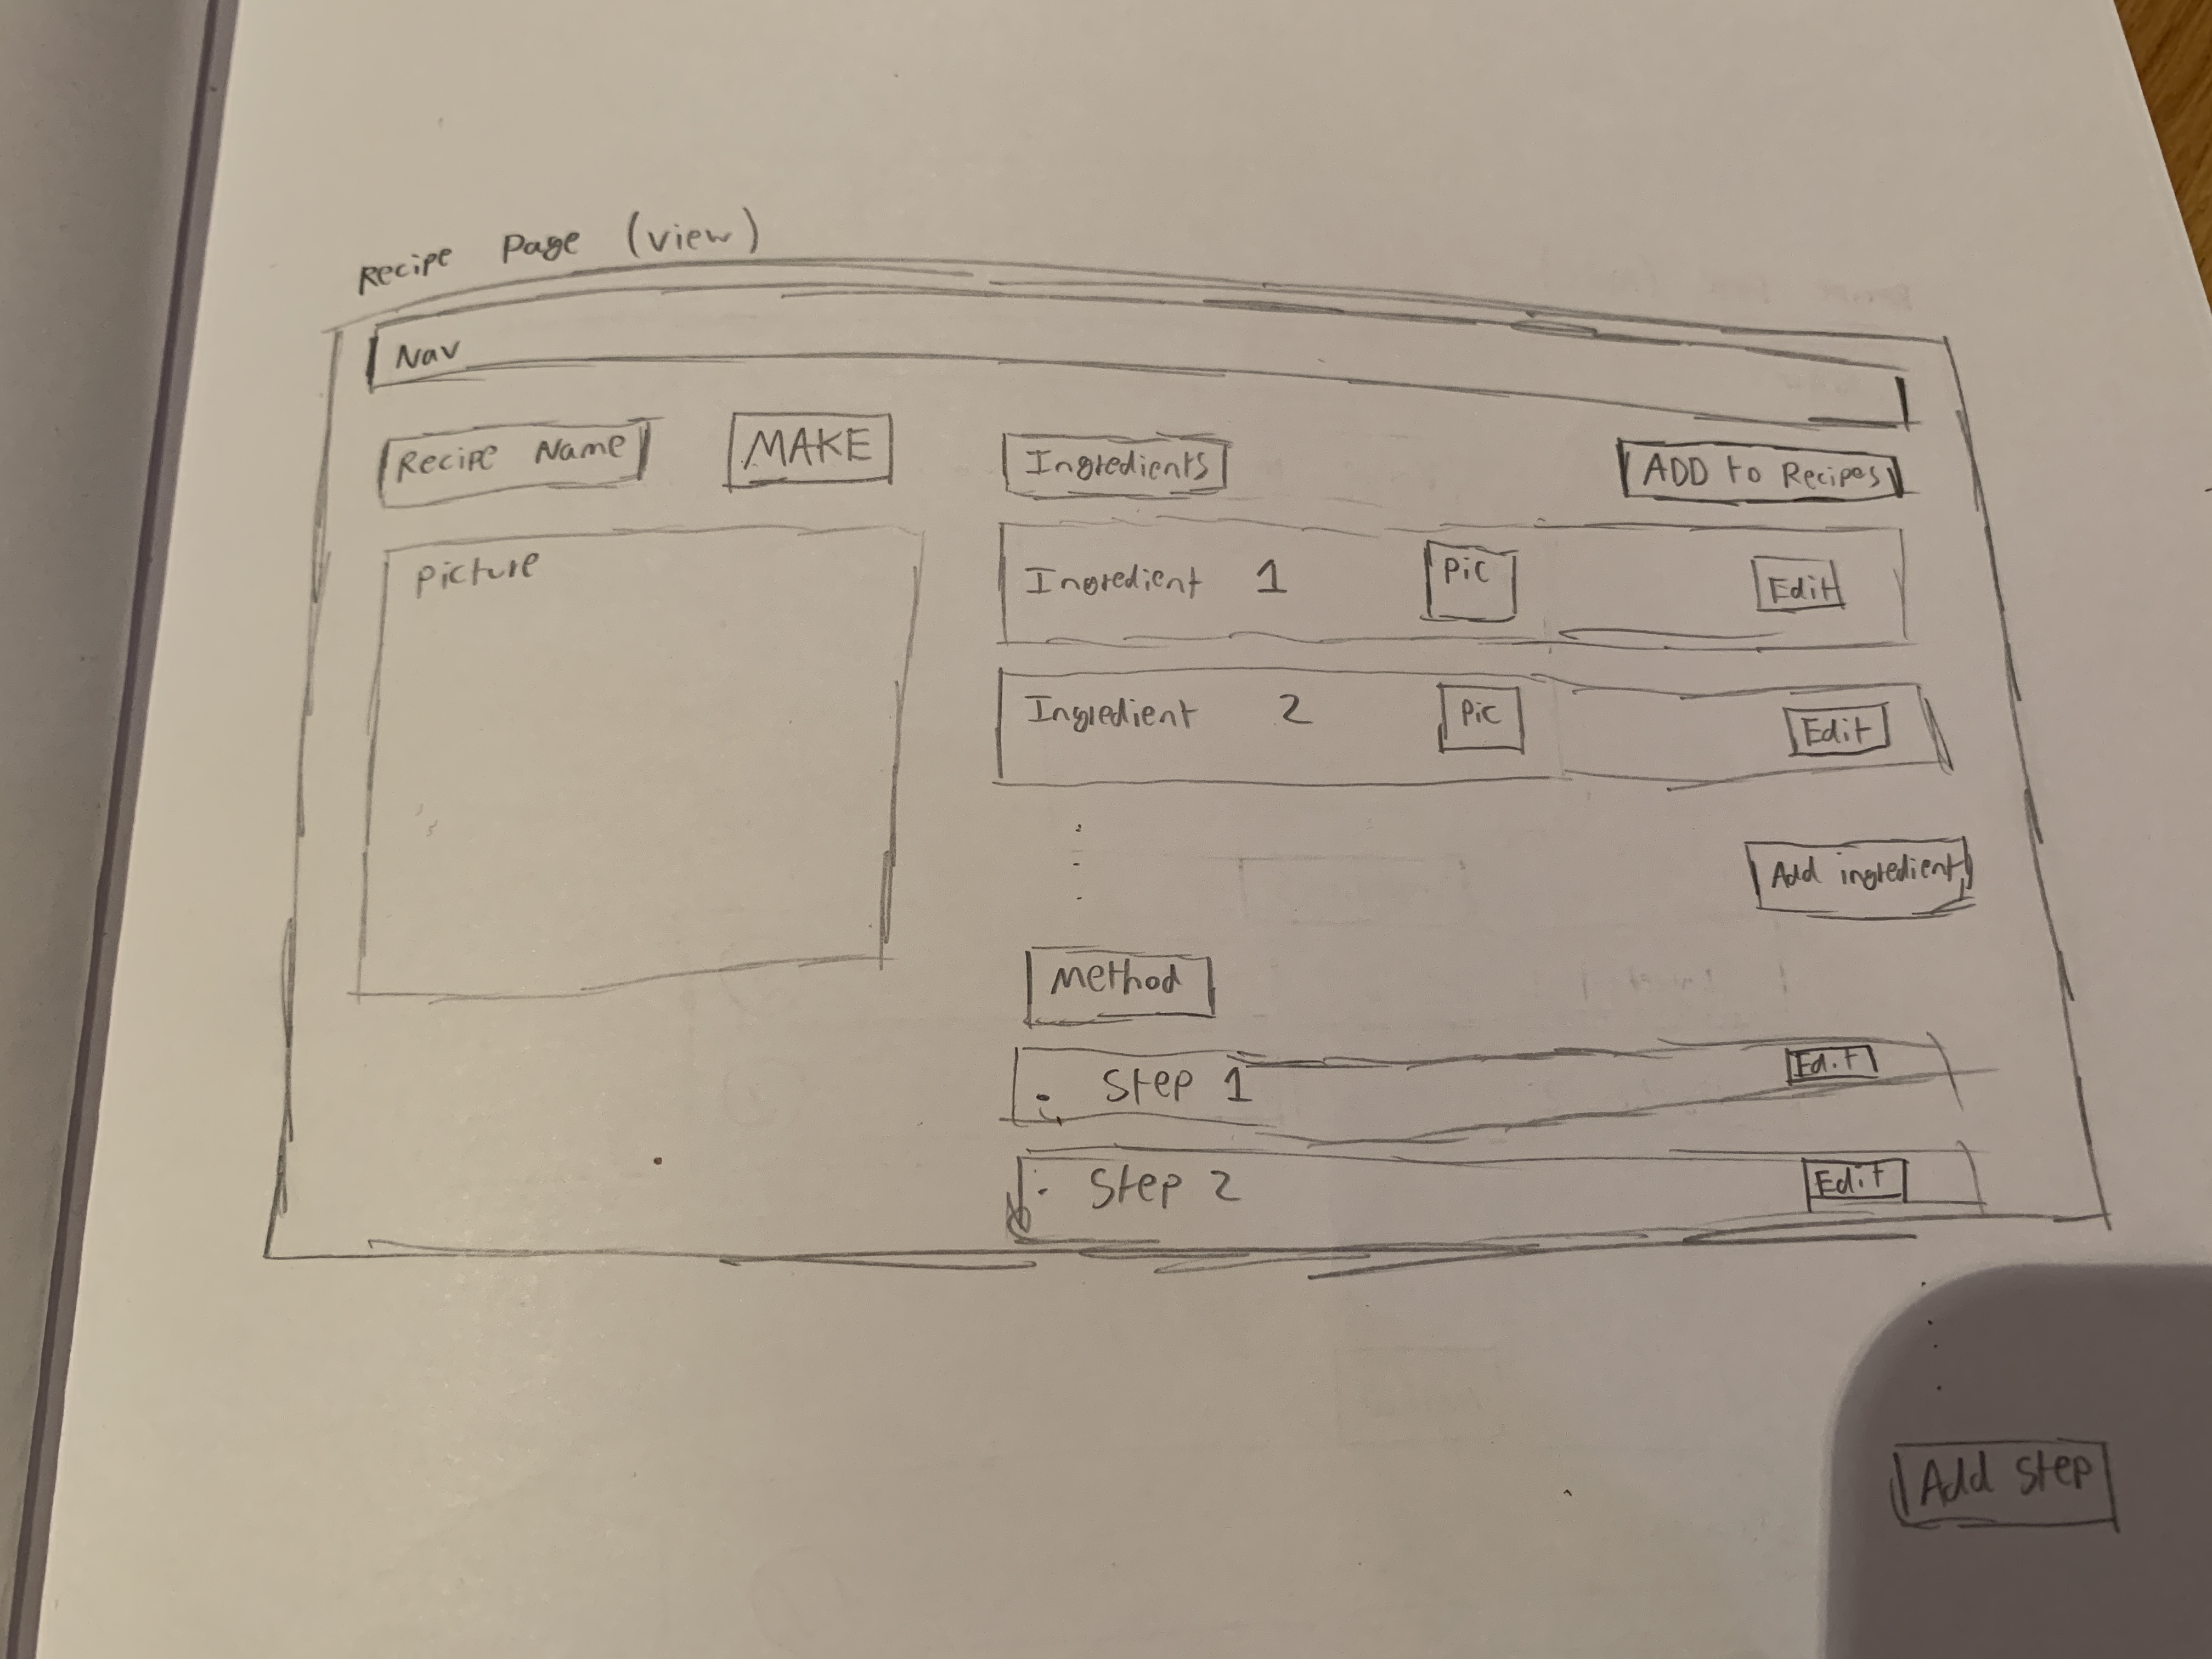 Recipe Page (view)
Nav
Recipe Name
MAKE
Ingredients
ADD to Recipes
picture
Ingredient 1
Pic
Edit
Ingredient 2
Pic
Edit
Add ingredient
Method
Step 1
Edit
Step 2
Edit
Add step